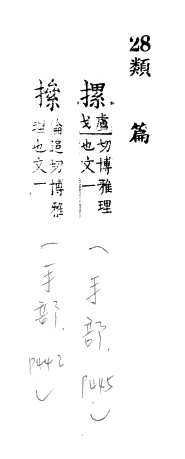 28類 篇
摞
盧切博雅理
戈也文一
（手部. P445）
倫追切博雅
理也文一
（手部. P442）